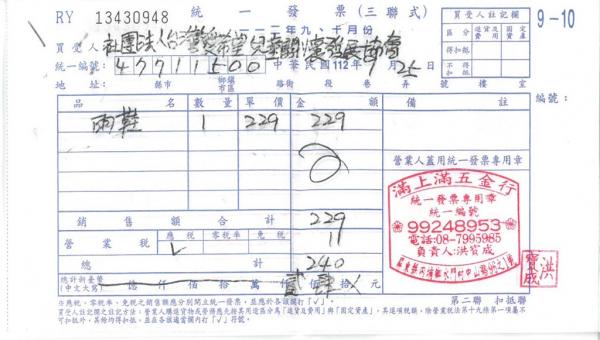 RY 13430948 統一發票(三聯式) 9-10
一一二年九、十月份
買受人 社團法人台灣愛希望兒童關懷發展協會
統一編號: 47711500 中華民國112年9月25日
地址: 縣市 鄉鎮市區 路街 段 巷 弄 號 樓 室
買受人註記欄
區分 進貨及費用 固定資產
得扣抵
不得扣抵
編號:
品名 數量 單價 金額 備註
雨鞋 1 229 229
營業人蓋用統一發票專用章
滿上滿五金行
統一發票專用章
統一編號
99248953
電話:08-7995985
負責人:洪寶成
洪寶成
銷售額合計 229
營業稅 應稅 零稅率 免稅 11
✓
總計 240
總計新臺幣
(中文大寫) 億 仟 佰 拾 萬 仟 貳佰肆拾 元
第二聯 扣抵聯
※應稅、零稅率、免稅之銷售額應分別開立統一發票,並應於各該欄打「✓」。
買受人註記欄之註記方法:營業人購進貨物或勞務應先按其用途區分為「進貨及費用」與「固定資產」,其進項稅額,除營業稅法第十九條第一項屬不
可扣抵外,其餘均得扣抵,並在各該適當欄內打「✓」符號。